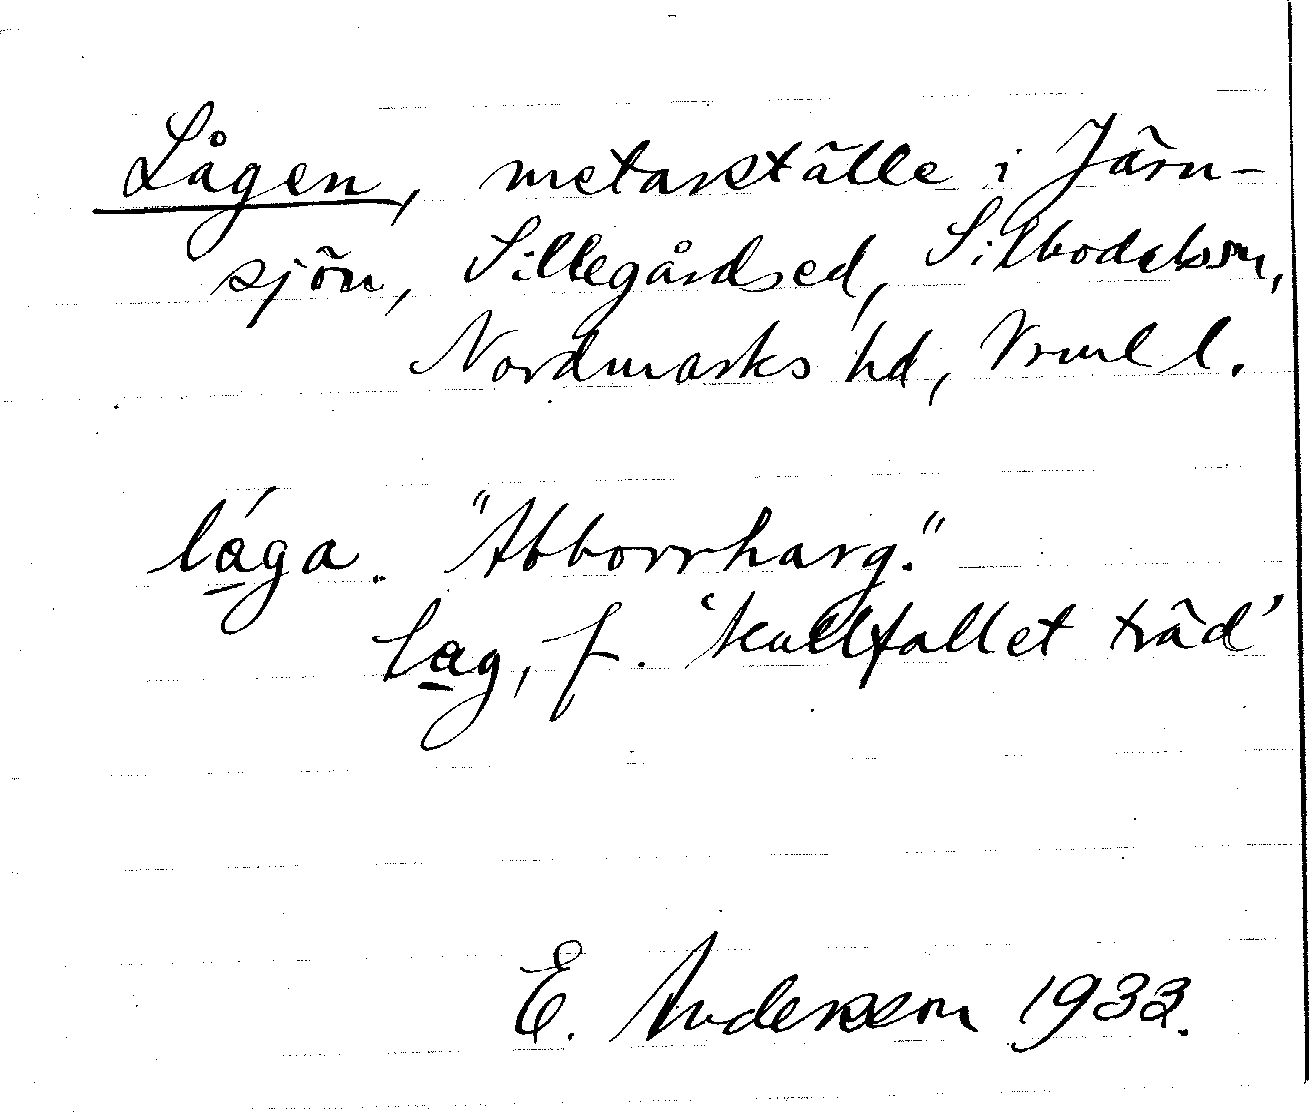 Lågen, metarställe i Järn-
sjön, Sillegårdsed, Silbodals sn,
Nordmarks hd, Vrml l.
lága. "Abborrharg."
lag, f. 'kullfallet träd'
E. Andersson 1933.